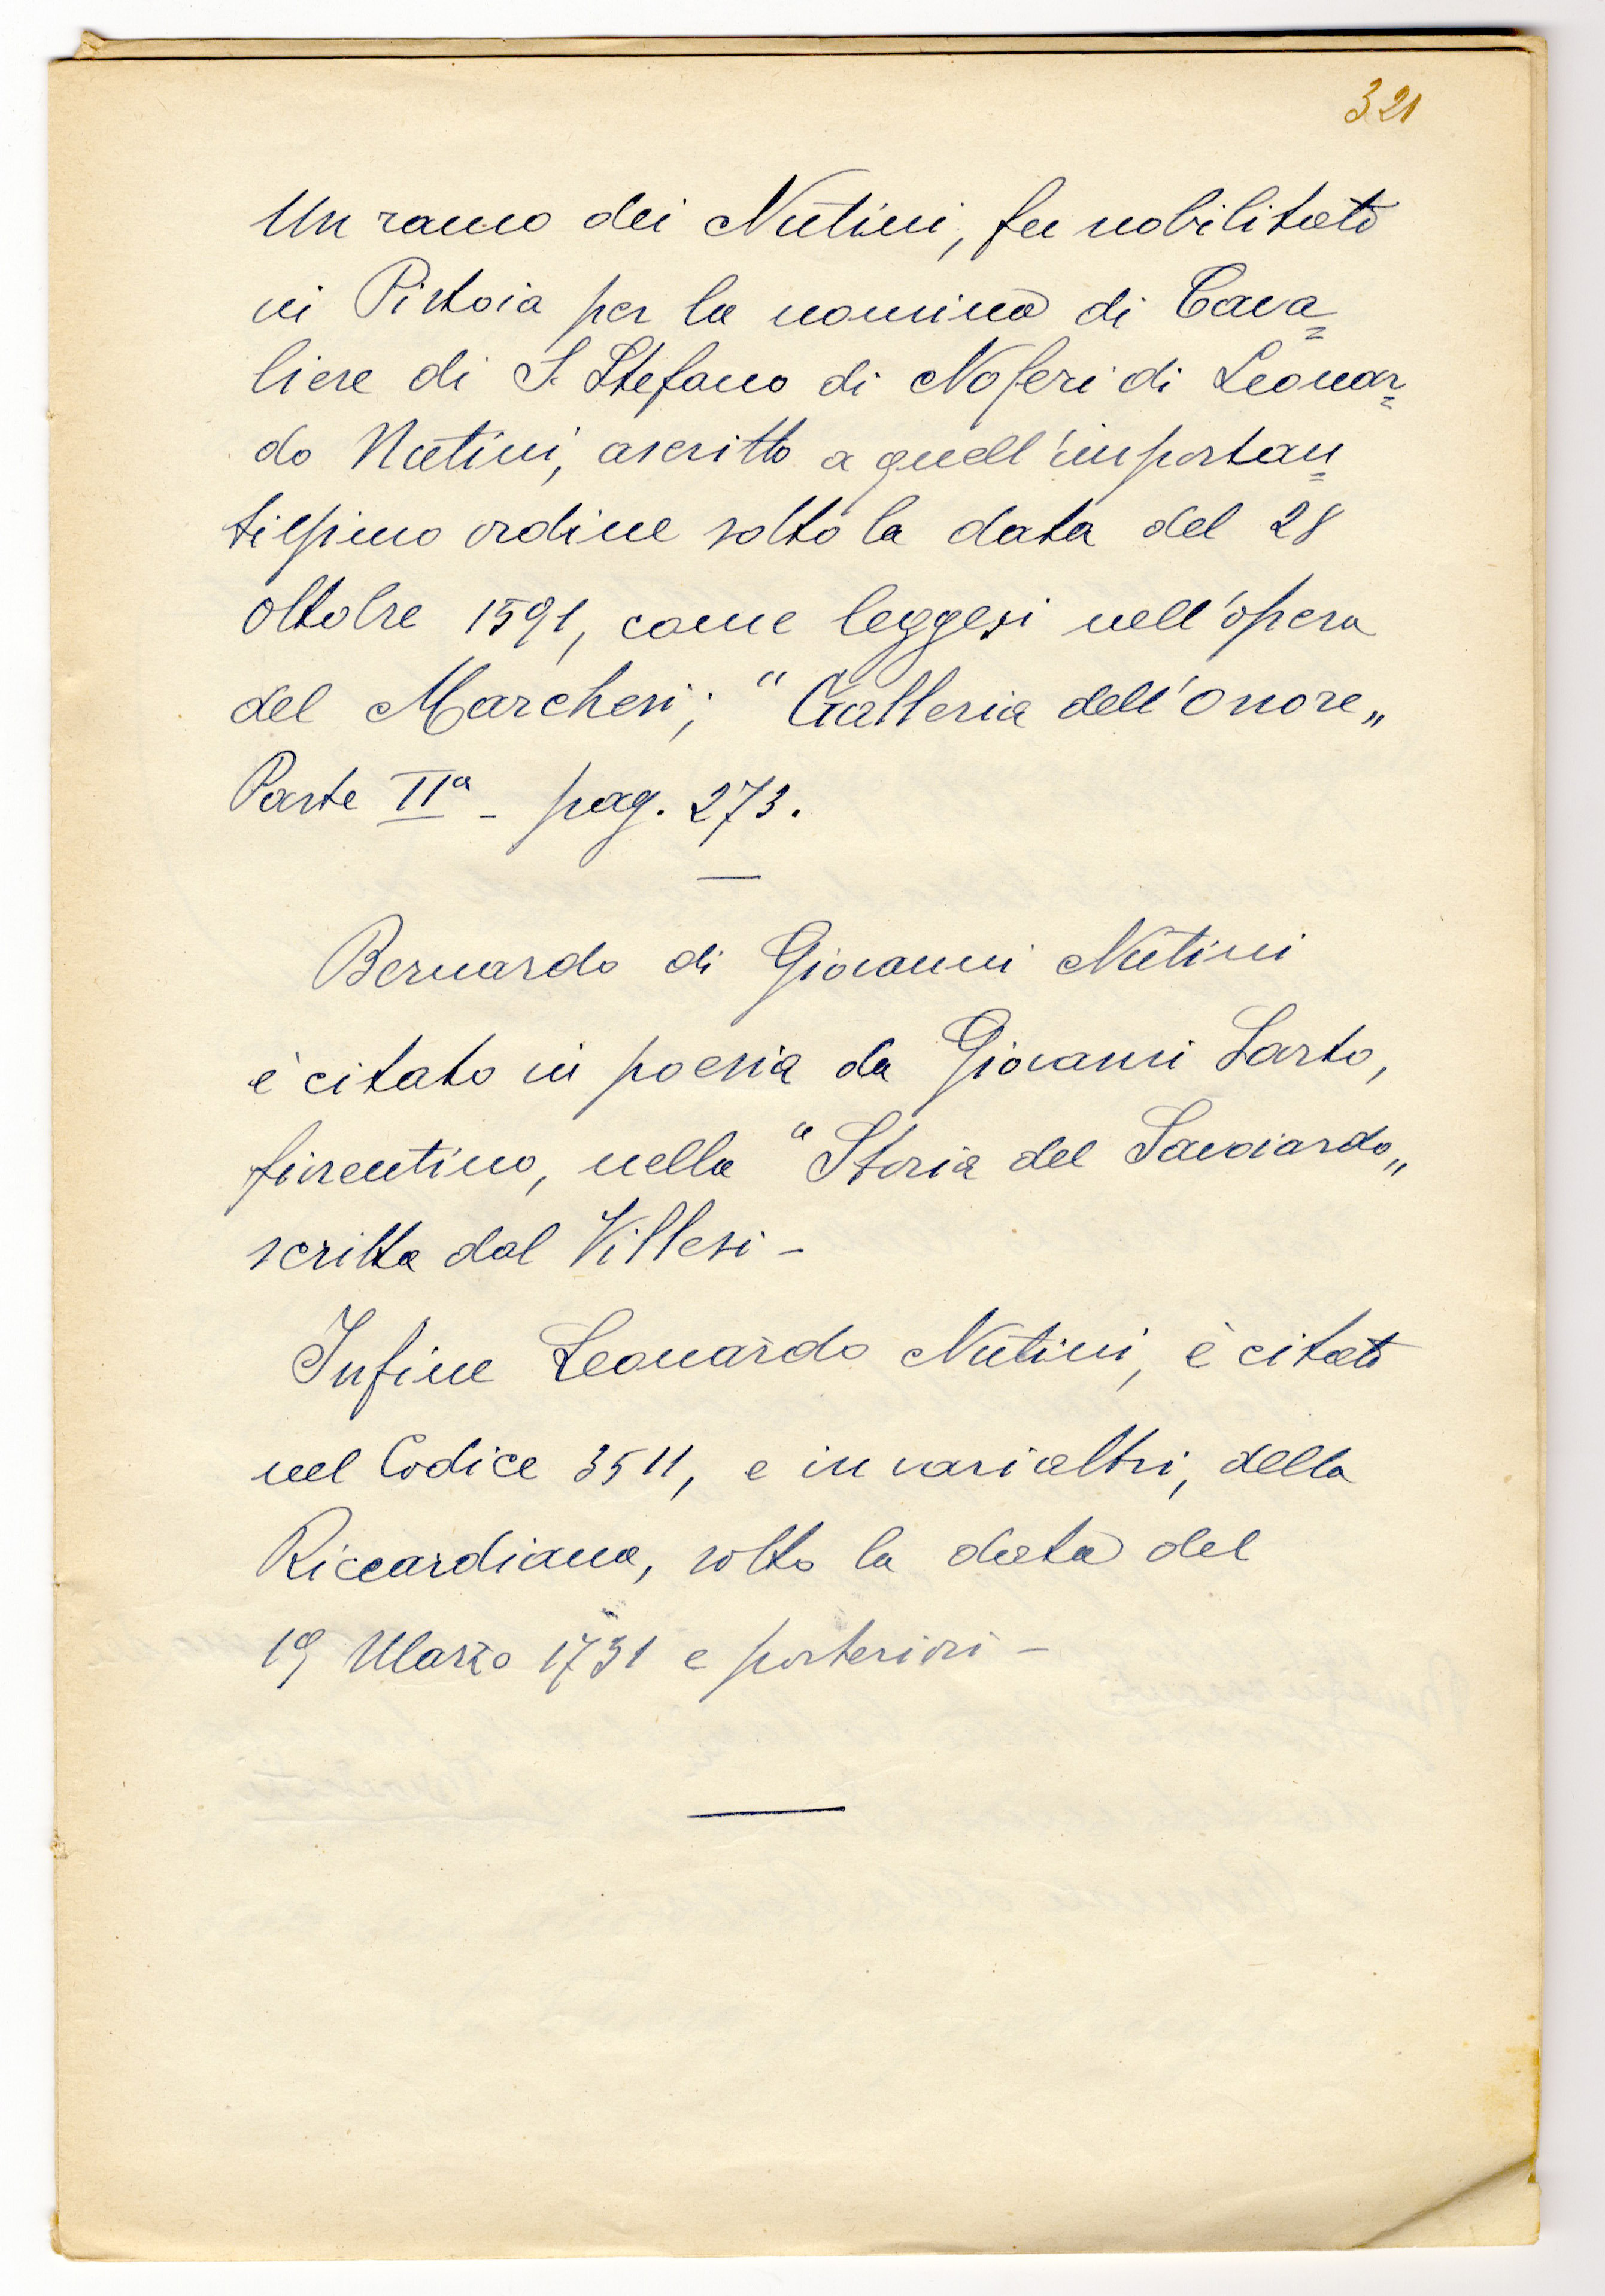 321
Un ramo dei Nutini, fu nobilitato
in Pistoia per la nomina di Cava=
liere di S. Stefano di Noferi di Leonar=
do Nutini, ascritto a quell'importan=
tissimo ordine sotto la data del 28
Ottobre 1591, come leggesi nell'opera
del Marchesi; "Galleria dell'Onore„
Parte IIª - pag. 273.
Bernardo di Giovanni Nutini
è citato in poesia da Giovanni Sarto,
fiorentino, nella "Storia del Savoiardo„
scritta dal Villesi -
Infine Leonardo Nutini, è citato
nel Codice 3511, e in vari altri, della
Riccardiana, sotto la data del
19 Marzo 1731 e posteriori -